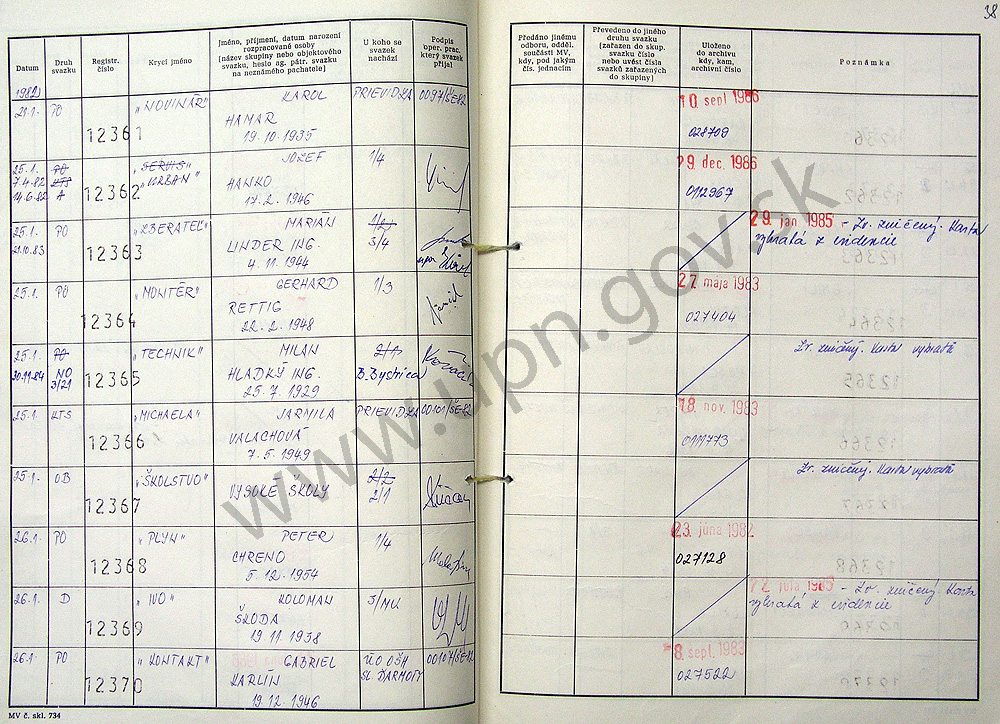 38
Datum
Druh svazku
Registr. číslo
Krycí jméno
Jméno, příjmení, datum narození rozpracované osoby (název skupiny nebo objektového svazku, heslo ag. pátr. svazku na neznámého pachatele)
U koho se svazek nachází
Podpis oper. prac. který svazek přijal
Předáno jinému odboru, odděl. součásti MV, kdy, pod jakým čís. jednacím
Převedeno do jiného druhu svazku (zařazen do skup. svazku číslo nebo uvést čísla svazků zařazených do skupiny)
Uloženo do archivu kdy, kam, archivní číslo
Poznámka
1982
21.1. PO 12361 "NOVINÁŘ" KAROL PRIEVIDZA 0097/ŠE82 10 sept 1986
HAMAR 028709
19.10.1935
25.1. PO 12362 "SERVIS" JOZEF 1/4 29. dec. 1986
7.4.82 KTS "URBAN" HANKO 012967
14.6.82 A 17.2.1946
25.1. PO 12363 "ZBERATEĽ" MARIÁN 29. jan 1985 - Zv. zničený. Karta
21.10.83 LINDER ING. 3/4 vybratá z evidencie
4.11.1944
25.1. PO 12364 "MONTÉR" GERHARD 1/3 27. mája 1983
RETTIG 027404
22.2.1948
25.1. PO 12365 "TECHNIK" MILAN 2/1 Zv. zničený. Karta vybratá
20.11.84 NO HLADKÝ ING. B. Bystrica
3/21 25.7.1929
25.1. KTS 12366 "MICHAELA" JARMILA PRIEVIDZA 00101/ŠE82 18. nov. 1983
VALACHOVÁ 011773
7.5.1949
25.1. OB 12367 "ŠKOLSTVO" VYSOKÉ ŠKOLY 2/2 Zv. zničený. Karta vybratá
2/1
26.1. PO 12368 "PLYN" PETER 1/4 23. júna 1982
CHRENO 027128
5.12.1954
26.1. D 12369 "IVO" KOLOMAN 3/MU 1985 - Zv. zničený Karta
ŠKODA vybratá z evidencie
19.11.1938
26.1 PO 12370 "KONTAKT" GABRIEL ÚO OŠH 00107/ŠE82 8. sept. 1983
KARLIN SL. ĎARMOTY 027522
19.12.1946
MV č. skl. 734
www.upn.gov.sk